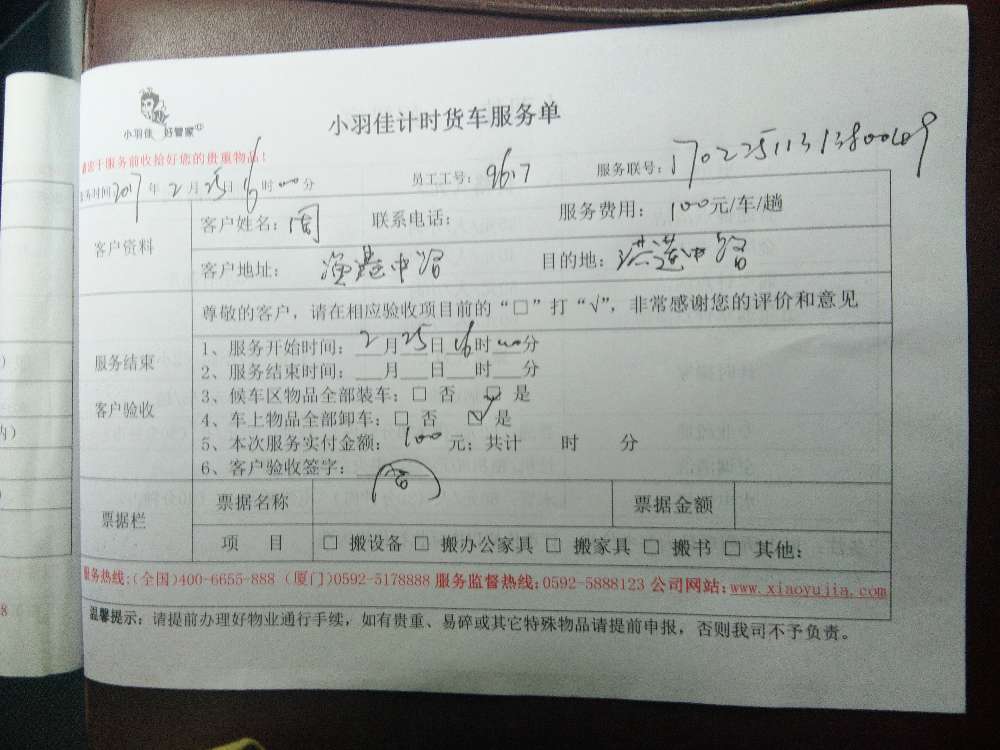 小羽佳 好管家
小羽佳计时货车服务单
于服务前收拾好您的贵重物品!
务时间2017年2月25日16时00分 员工工号:9617 服务联号:17022511313800609
客户资料
客户姓名:周 联系电话: 服务费用:100元/车/趟
客户地址: 目的地:
服务结束
客户验收
尊敬的客户,请在相应验收项目前的“□”打“√”,非常感谢您的评价和意见
1、服务开始时间:2月25日16时00分
2、服务结束时间:___月___日___时___分
3、候车区物品全部装车:□ 否 □ 是
4、车上物品全部卸车:□ 否 ☑ 是
5、本次服务实付金额:100元;共计 时 分
6、客户验收签字:
票据栏
票据名称 票据金额
项 目 □ 搬设备 □ 搬办公家具 □ 搬家具 □ 搬书 □ 其他:
服务热线:(全国)400-6655-888 (厦门)0592-5178888 服务监督热线:0592-5888123 公司网站:www.xiaoyujia.com
温馨提示:请提前办理好物业通行手续,如有贵重、易碎或其它特殊物品请提前申报,否则我司不予负责。